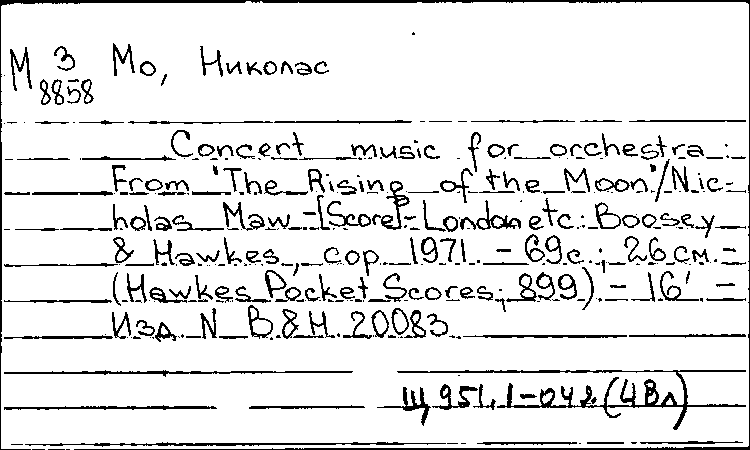 М 3 Мо, Николас
8858
Concert music for orchestra :
From 'The Rising of the Moon'/Nic-
holas Maw.-[Score].-London etc.: Boosey
& Hawkes, cop. 1971. - 69с.; 26 см. -
(Hawkes Pocket Scores; 899). - 16' -
Изд. N B.&H. 20083
Щ951.1-042(4Вл)